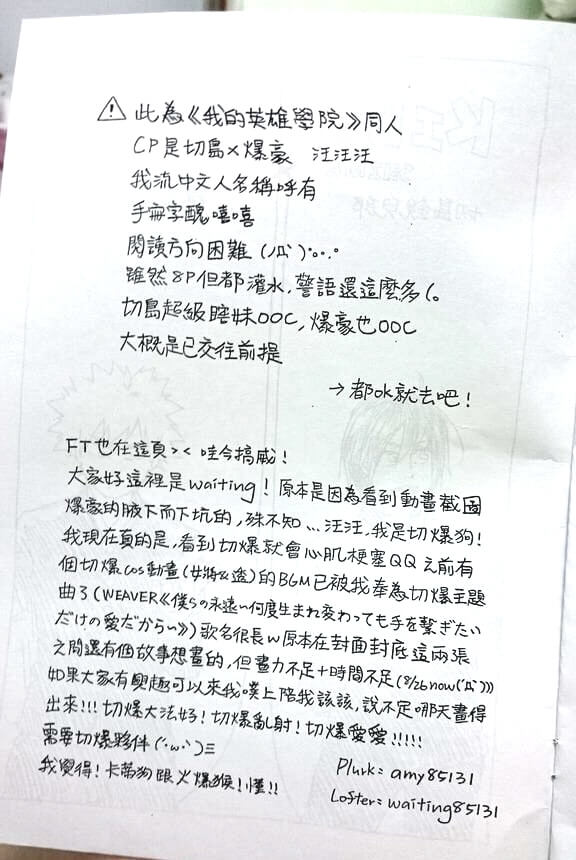 ⚠ 此為《我的英雄學院》同人
CP是切島×爆豪 汪汪汪
我流中文人名稱呼有
手寫字醜嘻嘻
閱讀方向困難
雖然8P但都灌水,警語還這麼多(。
切島超級瞎妹OOC,爆豪也OOC
大概是已交往前提
→都ok就去吧!
FT也在這頁>< 哇今搞威!
大家好這裡是waiting! 原本是因為看到動畫截圖
爆豪的腋下而下坑的,殊不知...汪汪.我是切爆狗!
我現在真的是,看到切爆就會心肌梗塞QQ 之前有
個切爆cos動畫(女將&透)的BGM已被我奉為切爆主題
曲了(WEAVER《僕らの永遠~何度生まれ変わっても手を繋ぎたい
だけの愛だから~》)歌名很長w原本在封面封底這兩張
之間還有個故事想畫的,但畫力不足+時間不足(8/26now(´Д`)))
如果大家有興趣可以來我噗上陪我該該,說不定哪天畫得
出來!!!切爆大法好!切爆亂射!切爆愛愛!!!!!
需要切爆夥伴(´・ω・`)三
我覺得!卡蒂狗跟火爆猴!懂!!
Plurk: amy85131
Lofter: waiting85131